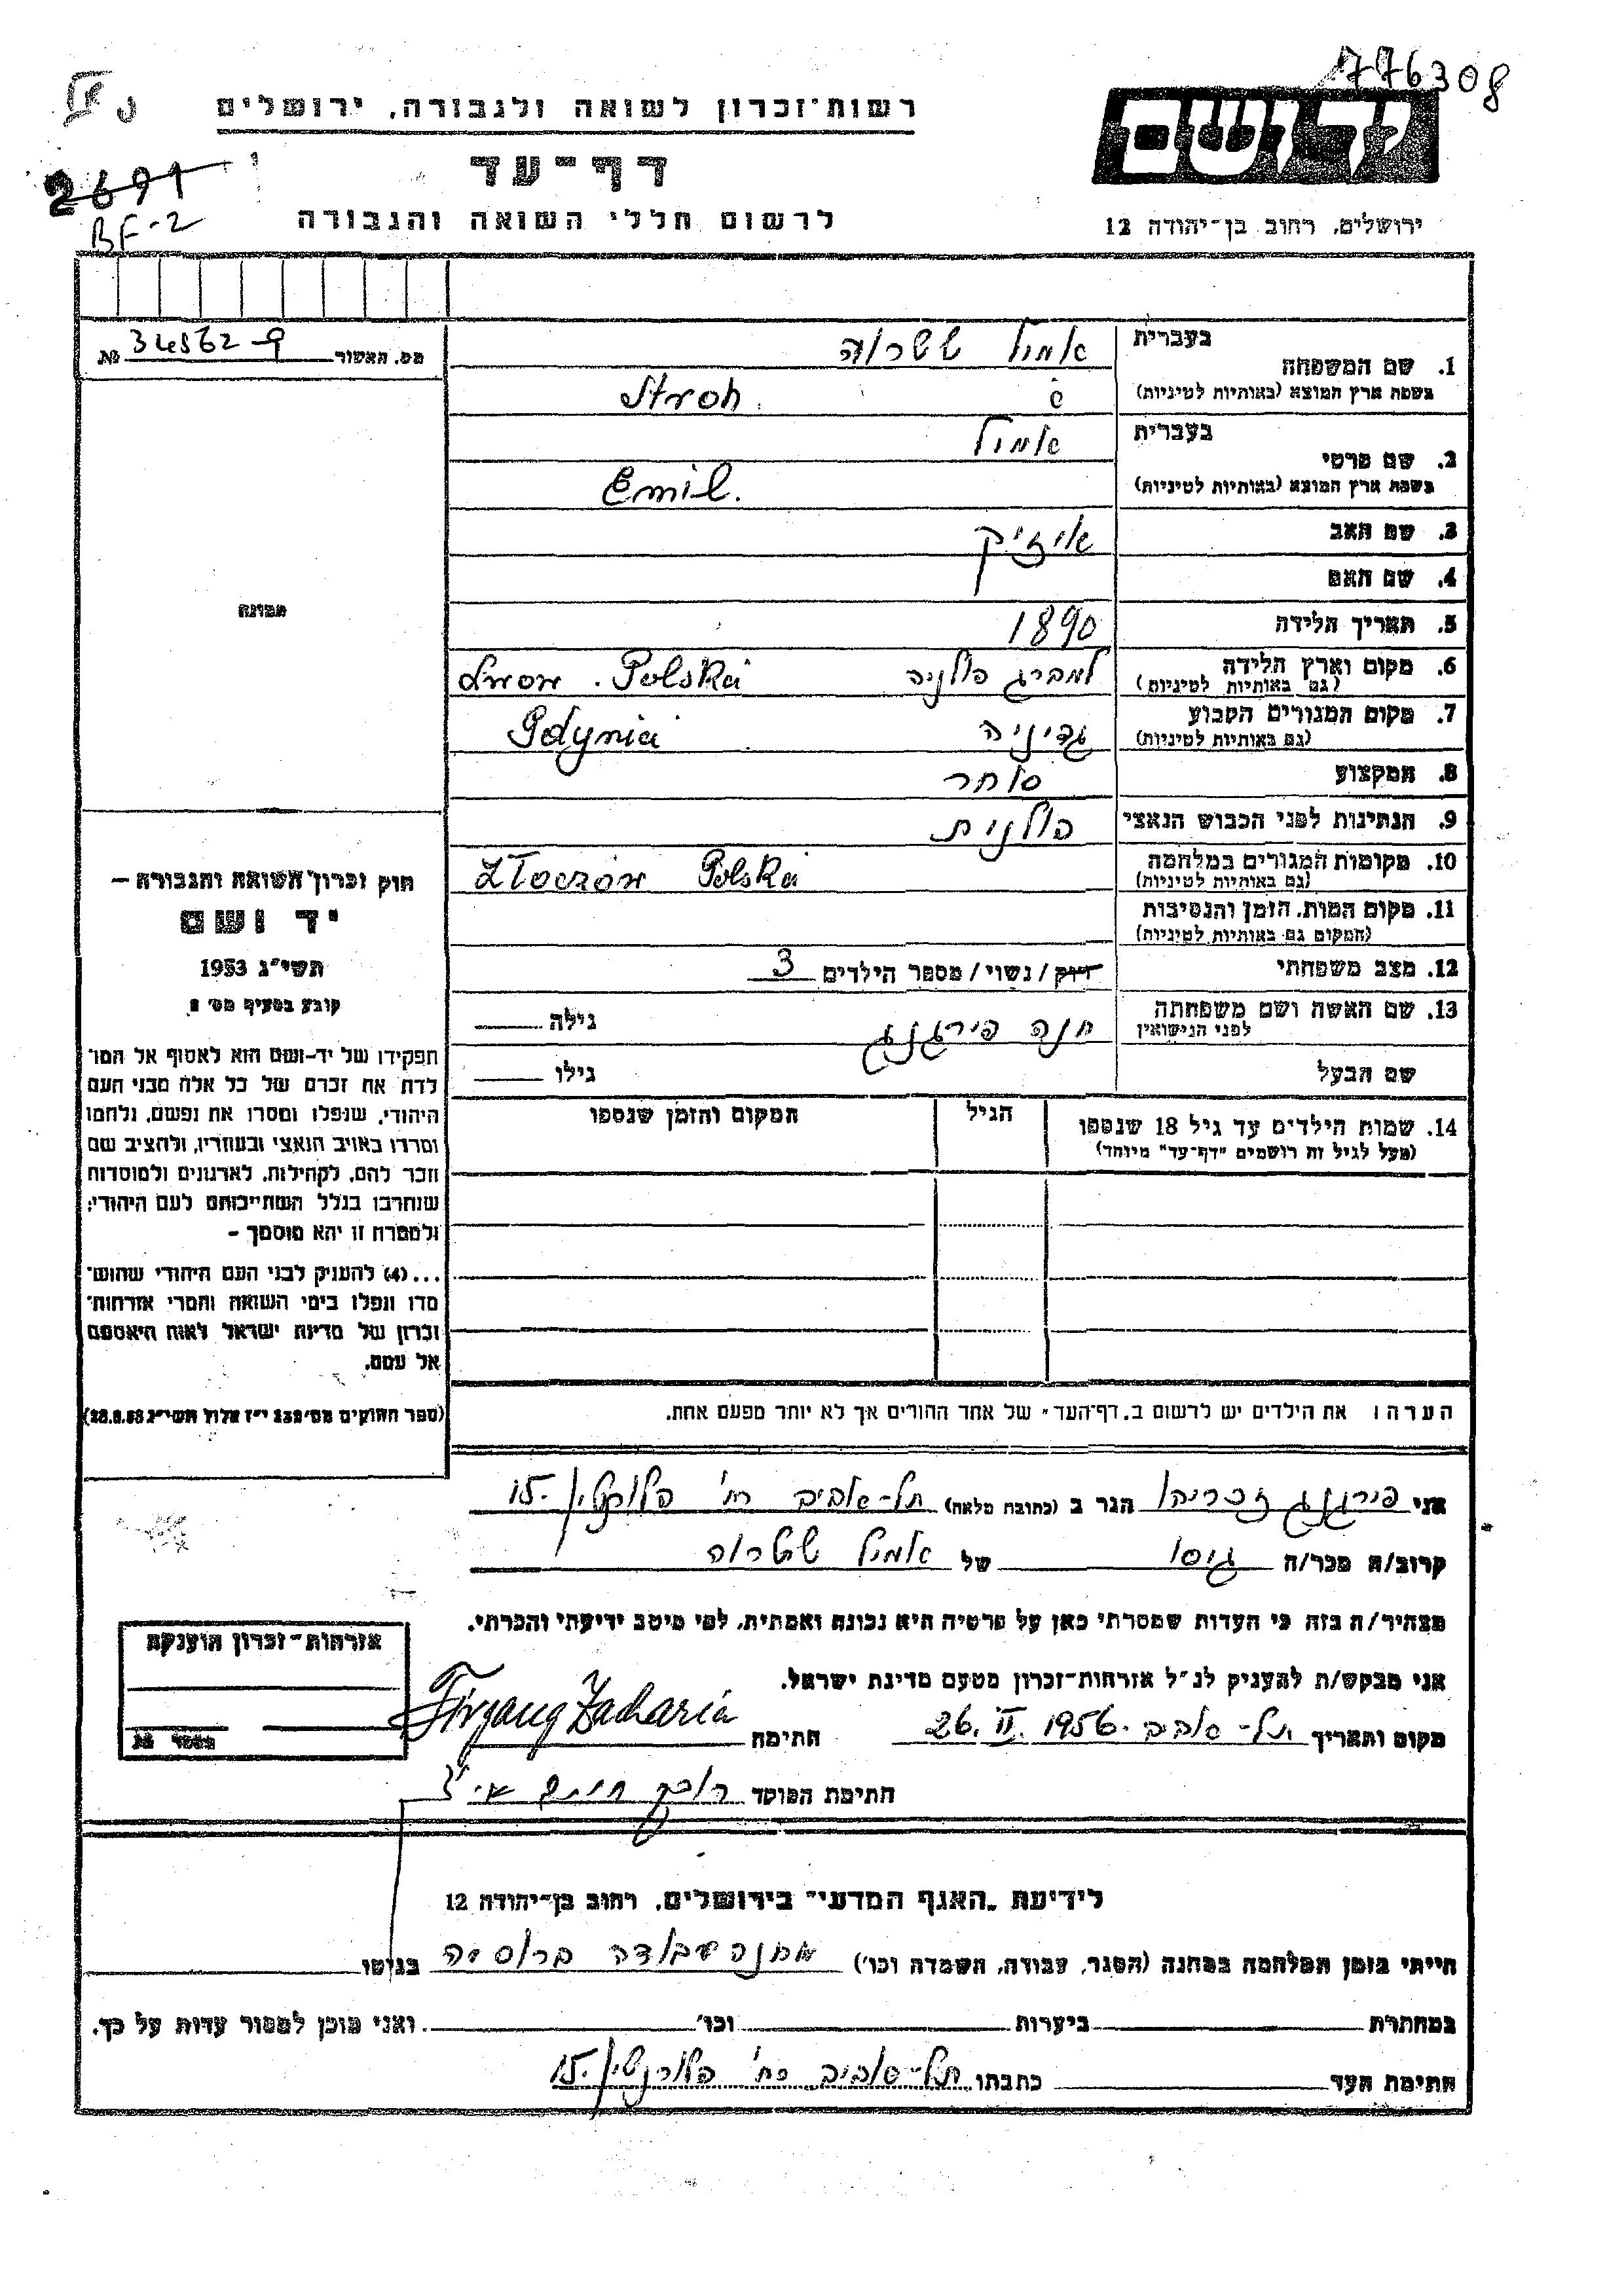 776308
רשות־זכרון לשואה ולגבורה, ירושלים
יד ושם
דף־עד
2691
BF-2
לרשום חללי השואה והגבורה
ירושלים, רחוב בן־יהודה 12
מס. האשור 34562-9 №
1. שם המשפחה
בעברית אמיל שטרוה
בשפת ארץ המוצא (באותיות לטיניות) Stroh
2. שם פרטי
בעברית אמיל
בשפת ארץ המוצא (באותיות לטיניות) Emil.
3. שם האב איזיק
4. שם האם
5. תאריך הלידה 1890
6. מקום וארץ הלידה (גם באותיות לטיניות) למברג פולניה Lwow. Polska
7. מקום המגורים הקבוע (גם באותיות לטיניות) גדיניה Gdynia
8. המקצוע סוחר
9. הנתינות לפני הכבוש הנאצי פולנית
10. מקומות המגורים במלחמה (גם באותיות לטיניות) Złoczów Polska
11. מקום המות, הזמן והנסיבות (המקום גם באותיות לטיניות)
12. מצב משפחתי רווק/נשוי/ מספר הילדים 3
13. שם האשה ושם משפחתה לפני הנישואין חנה פירגנג גילה
שם הבעל גילו
14. שמות הילדים עד גיל 18 שנספו הגיל המקום והזמן שנספו
(מעל לגיל זה רושמים "דף־עד" מיוחד)
הערה: את הילדים יש לרשום ב„דף־העד" של אחד ההורים אך לא יותר מפעם אחת.
תמונה
חוק זכרון השואה והגבורה —
יד ושם
תשי"ג 1953
קובע בסעיף מס' 2
תפקידו של יד־ושם הוא לאסוף אל המו־
לדת את זכרם של כל אלה מבני העם
היהודי, שנפלו ומסרו את נפשם, נלחמו
ומרדו באויב הנאצי ובעוזריו, ולהציב שם
וזכר להם, לקהילות, לארגונים ולמוסדות
שנחרבו בגלל השתייכותם לעם היהודי;
ולמטרה זו יהא מוסמך —
...(4) להעניק לבני העם היהודי שהוש־
מדו ונפלו בימי השואה והמרי אזרחות־
זכרון של מדינת ישראל לאות היאספם
אל עמם.
(ספר החוקים מס' 132 י"ז אלול תשי"ג 28.8.53)
אני פירגנג זכריהו הגר ב (כתובת מלאה) תל-אביב רח' פלורנטין 15.
קרוב/ה מכר/ה גיסו של אמיל שטרוה
מצהיר/ה בזה כי העדות שמסרתי כאן על פרטיה היא נכונה ואמתית, לפי מיטב ידיעתי והכרתי.
אני מבקש/ת להעניק לנ"ל אזרחות־זכרון מטעם מדינת ישראל.
מקום ותאריך תל-אביב 26.II.1956. חתימה Firgang Zacharia
חתימת הפוקד
אזרחות־זכרון הוענקה
מספר
לידיעת „האגף המדעי" בירושלים, רחוב בן־יהודה 12
הייתי בזמן המלחמה במחנה (הסגר, עבודה, השמדה וכו') מחנה עבודה ברוסיה בגיטו
במחתרת ביערות וכו' ואני מוכן למסור עדות על כך.
חתימת העד כתבתו תל-אביב רח' פלורנטין 15.